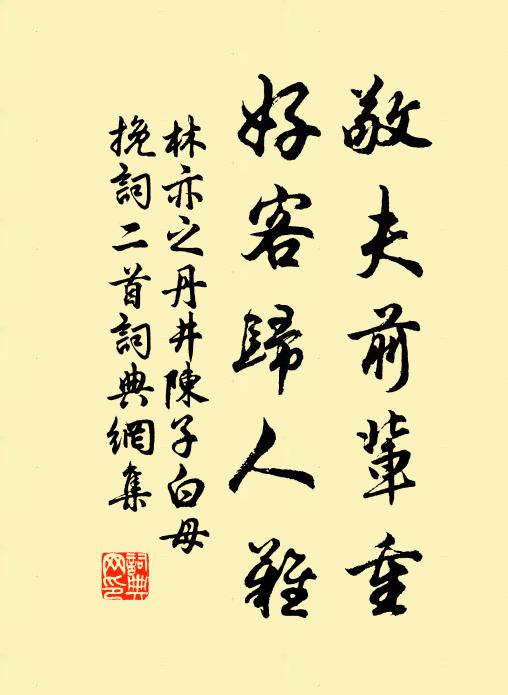 敬夫前輩重
好客歸人難
林亦之丹井陳子白母
挽詞二首詞典網集
詞典
网印